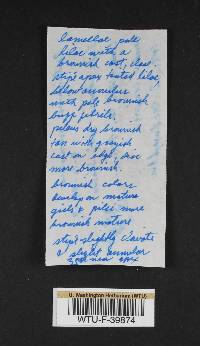 lamellae pale
lilac with a
brownish cast, close.
stipe apex tinted lilac,
below annulus
with pale brownish
buff fibrils.
pileus dry brownish
tan with grayish
cast on edge, disc
more brownish.
brownish colors
develop on mature
gills & pilei more
brownish mature
stipe slightly clavate
slight annular
zone near apex
U. Washington Herbarium (WTU)
WTU-F-39874